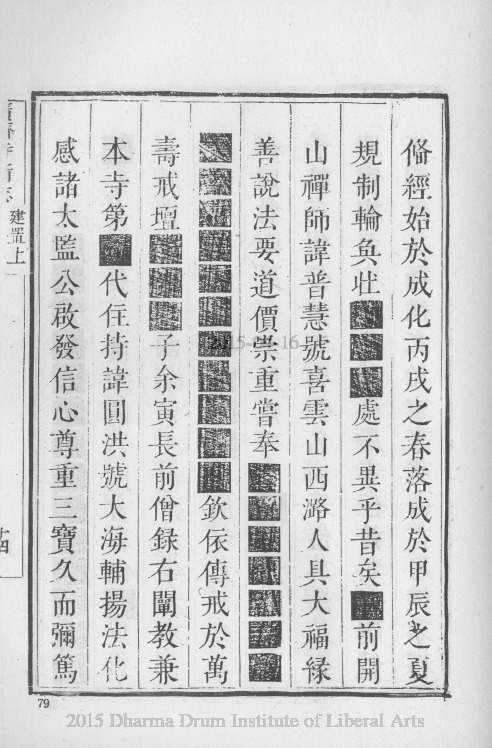 脩經始於成化丙戌之春落成於甲辰之夏
規制輪奐壯■■■處不異乎昔矣■前開
山禪師諱普慧號喜雲山西潞人具大福緣
善說法要道價崇重嘗奉■■■■■■■
■■■■■■■■■■■欽依傳戒於萬
壽戒壇■■■子余寅長前僧録右闡教兼
本寺第■代住持諱圓洪號大海輔揚法化
感諸太監公啟發信心尊重三寶久而彌篤
建置上
十四
79
2015-01-16
2015 Dharma Drum Institute of Liberal Arts